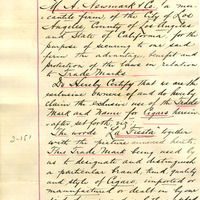 M. A. Newmark & Co. a mer-
cantile firm, of the City of Los
Angeles, County of Los Angeles
and State of California for the
purpose of securing to our said
firm the advantage and
protection of the laws in relation
to Trade Marks
Do Hereby Certify that we are the
exclusive owners of and do hereby
claim the exclusive use of the Trade
Mark and Name for Cigars herein
after set forth, viz:
2-151
The words "La Fiesta" together
with the picture annexed hereto.
This Trade Mark being used by
us to designate and distinguish
a particular brand, kind, quality
and style of Cigars, imported or
manufactured or dealt in by our